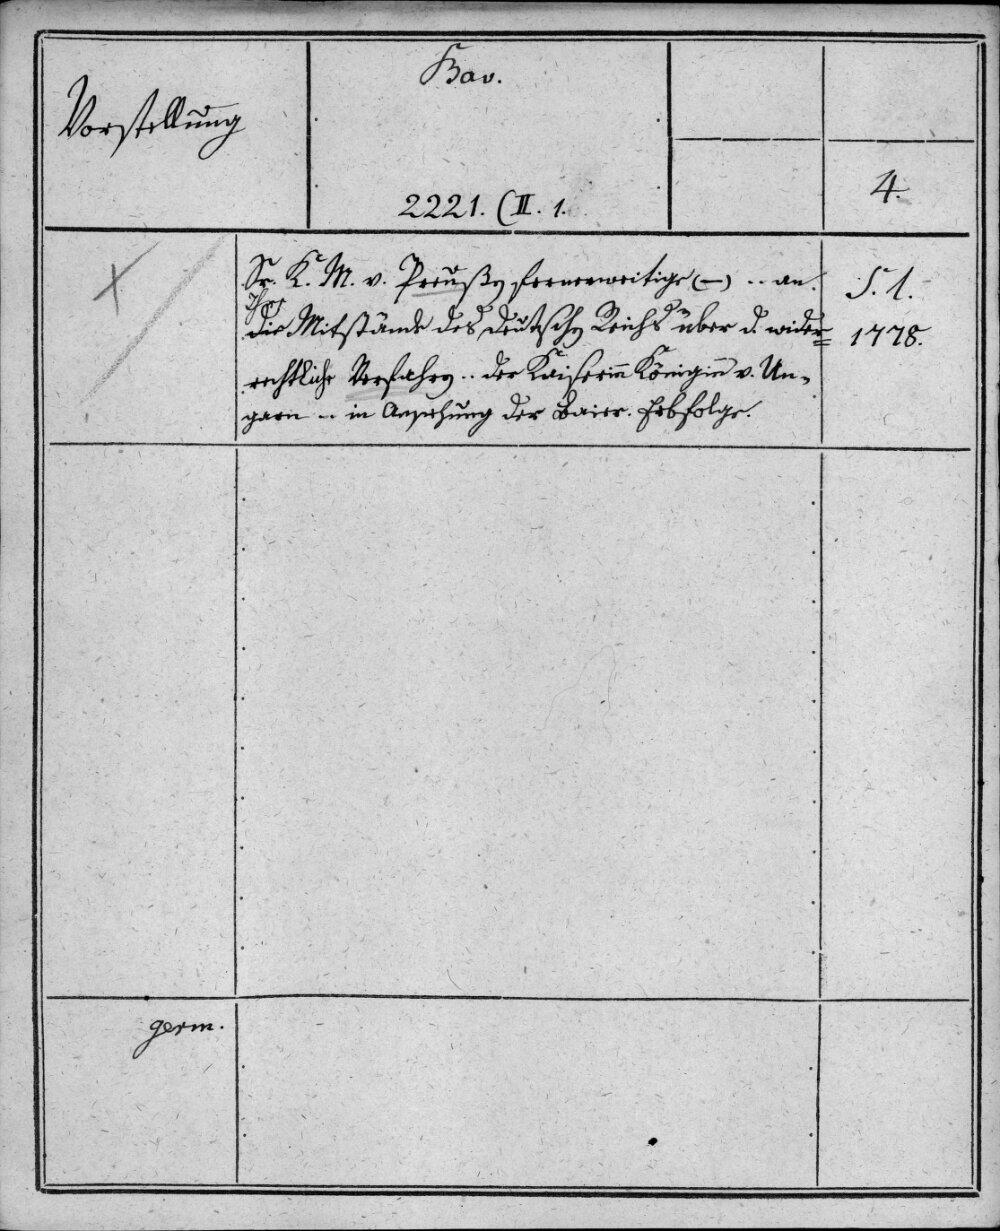 Vorstellung
Bav.
2221. (II. 1.
4.
Sr. K. M. v. Preußen fernerweitige (—) .. an.
Ihre
die Mitstände des deutschen Reichs über d. wider=
rechtliche Verfahren .. der Kaiserin Königin v. Un=
garn .. in Ansehung der Baier. Erbfolge.
S. l.
1778.
germ.